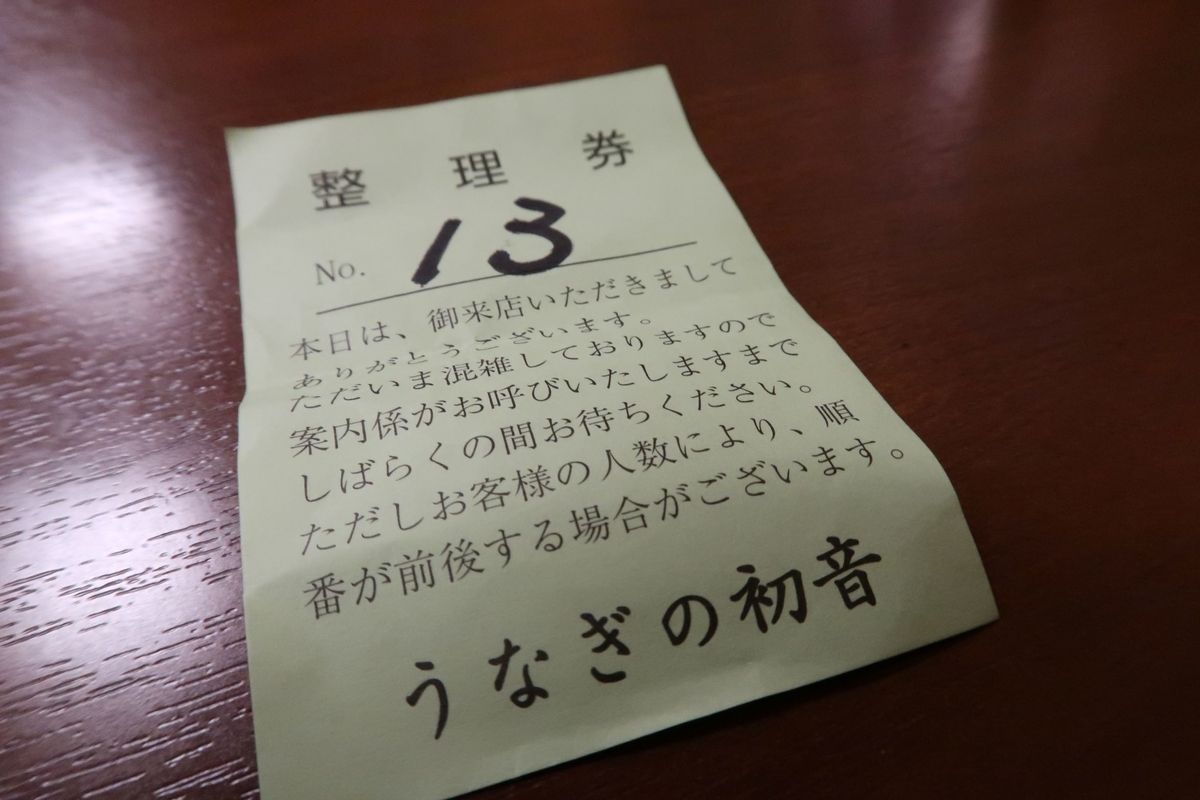 整理券
No. 13
本日は、御来店いただきまして
ありがとうございます。
ただいま混雑しておりますので
案内係がお呼びいたしますまで
しばらくの間お待ちください。
ただしお客様の人数により、順
番が前後する場合がございます。
うなぎの初音